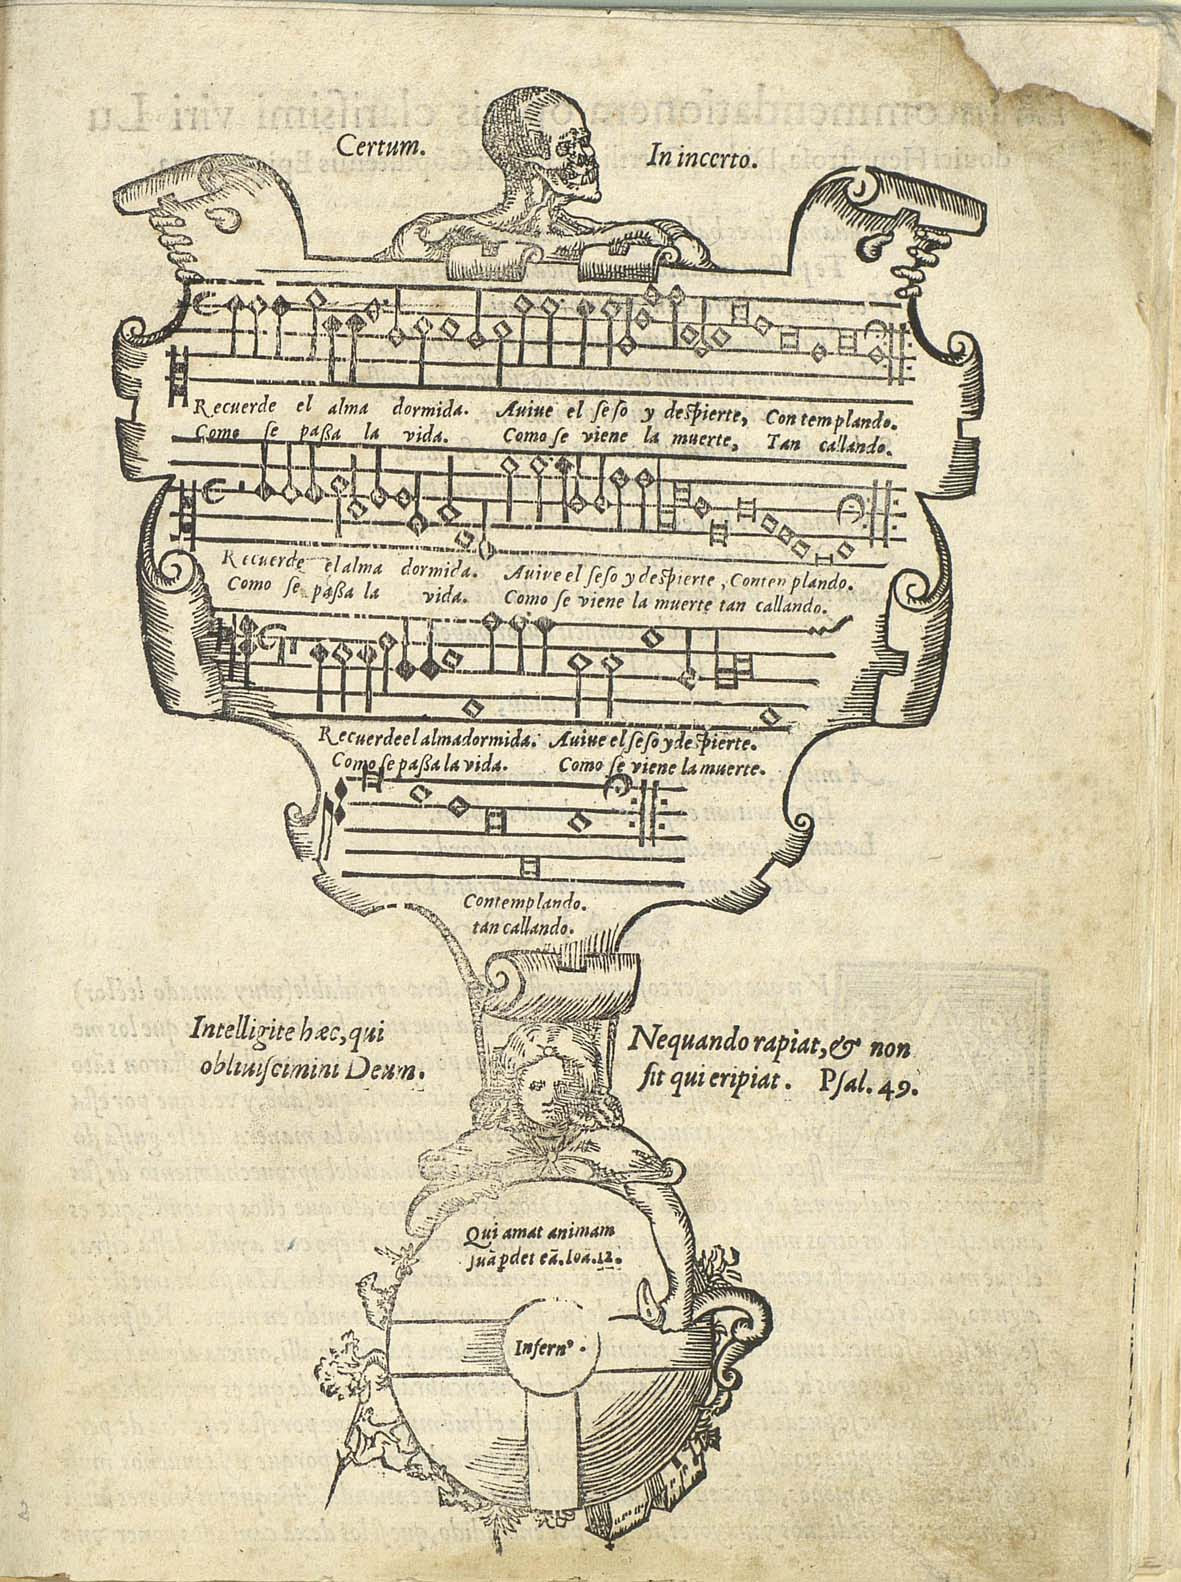 Certum.
In incerto.
Recuerde el alma dormida. Auiue el seso y despierte, Contemplando.
Como se paßa la vida. Como se viene la muerte, Tan callando.
Recuerde el alma dormida. Auiue el seso y despierte, Contenplando.
Como se paßa la vida. Como se viene la muerte tan callando.
Recuerde el alma dormida. Auiue el seso y despierte.
Como se paßa la vida. Como se viene la muerte.
Contemplando.
tan callando.
Intelligite hæc, qui
obliuiscimini Deum.
Nequando rapiat, & non
sit qui eripiat. Psal. 49.
Qui amat animam
suā ꝑdet eā. Ioa. 12.
Infernꝰ.